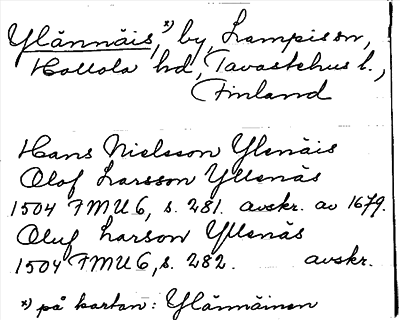 Ylännäis,*) by, Lampis sn,
Hollola hd, Tavastehus l.,
Finland
Hans Nielsson Ylenäis
Olof Larsson Yllenäs
1504 FMU 6, s. 281. avskr. av 1679.
Oluf Larson Yllenäs
1504 FMU 6, s. 282. avskr.
*) på kartan: Ylännäinen